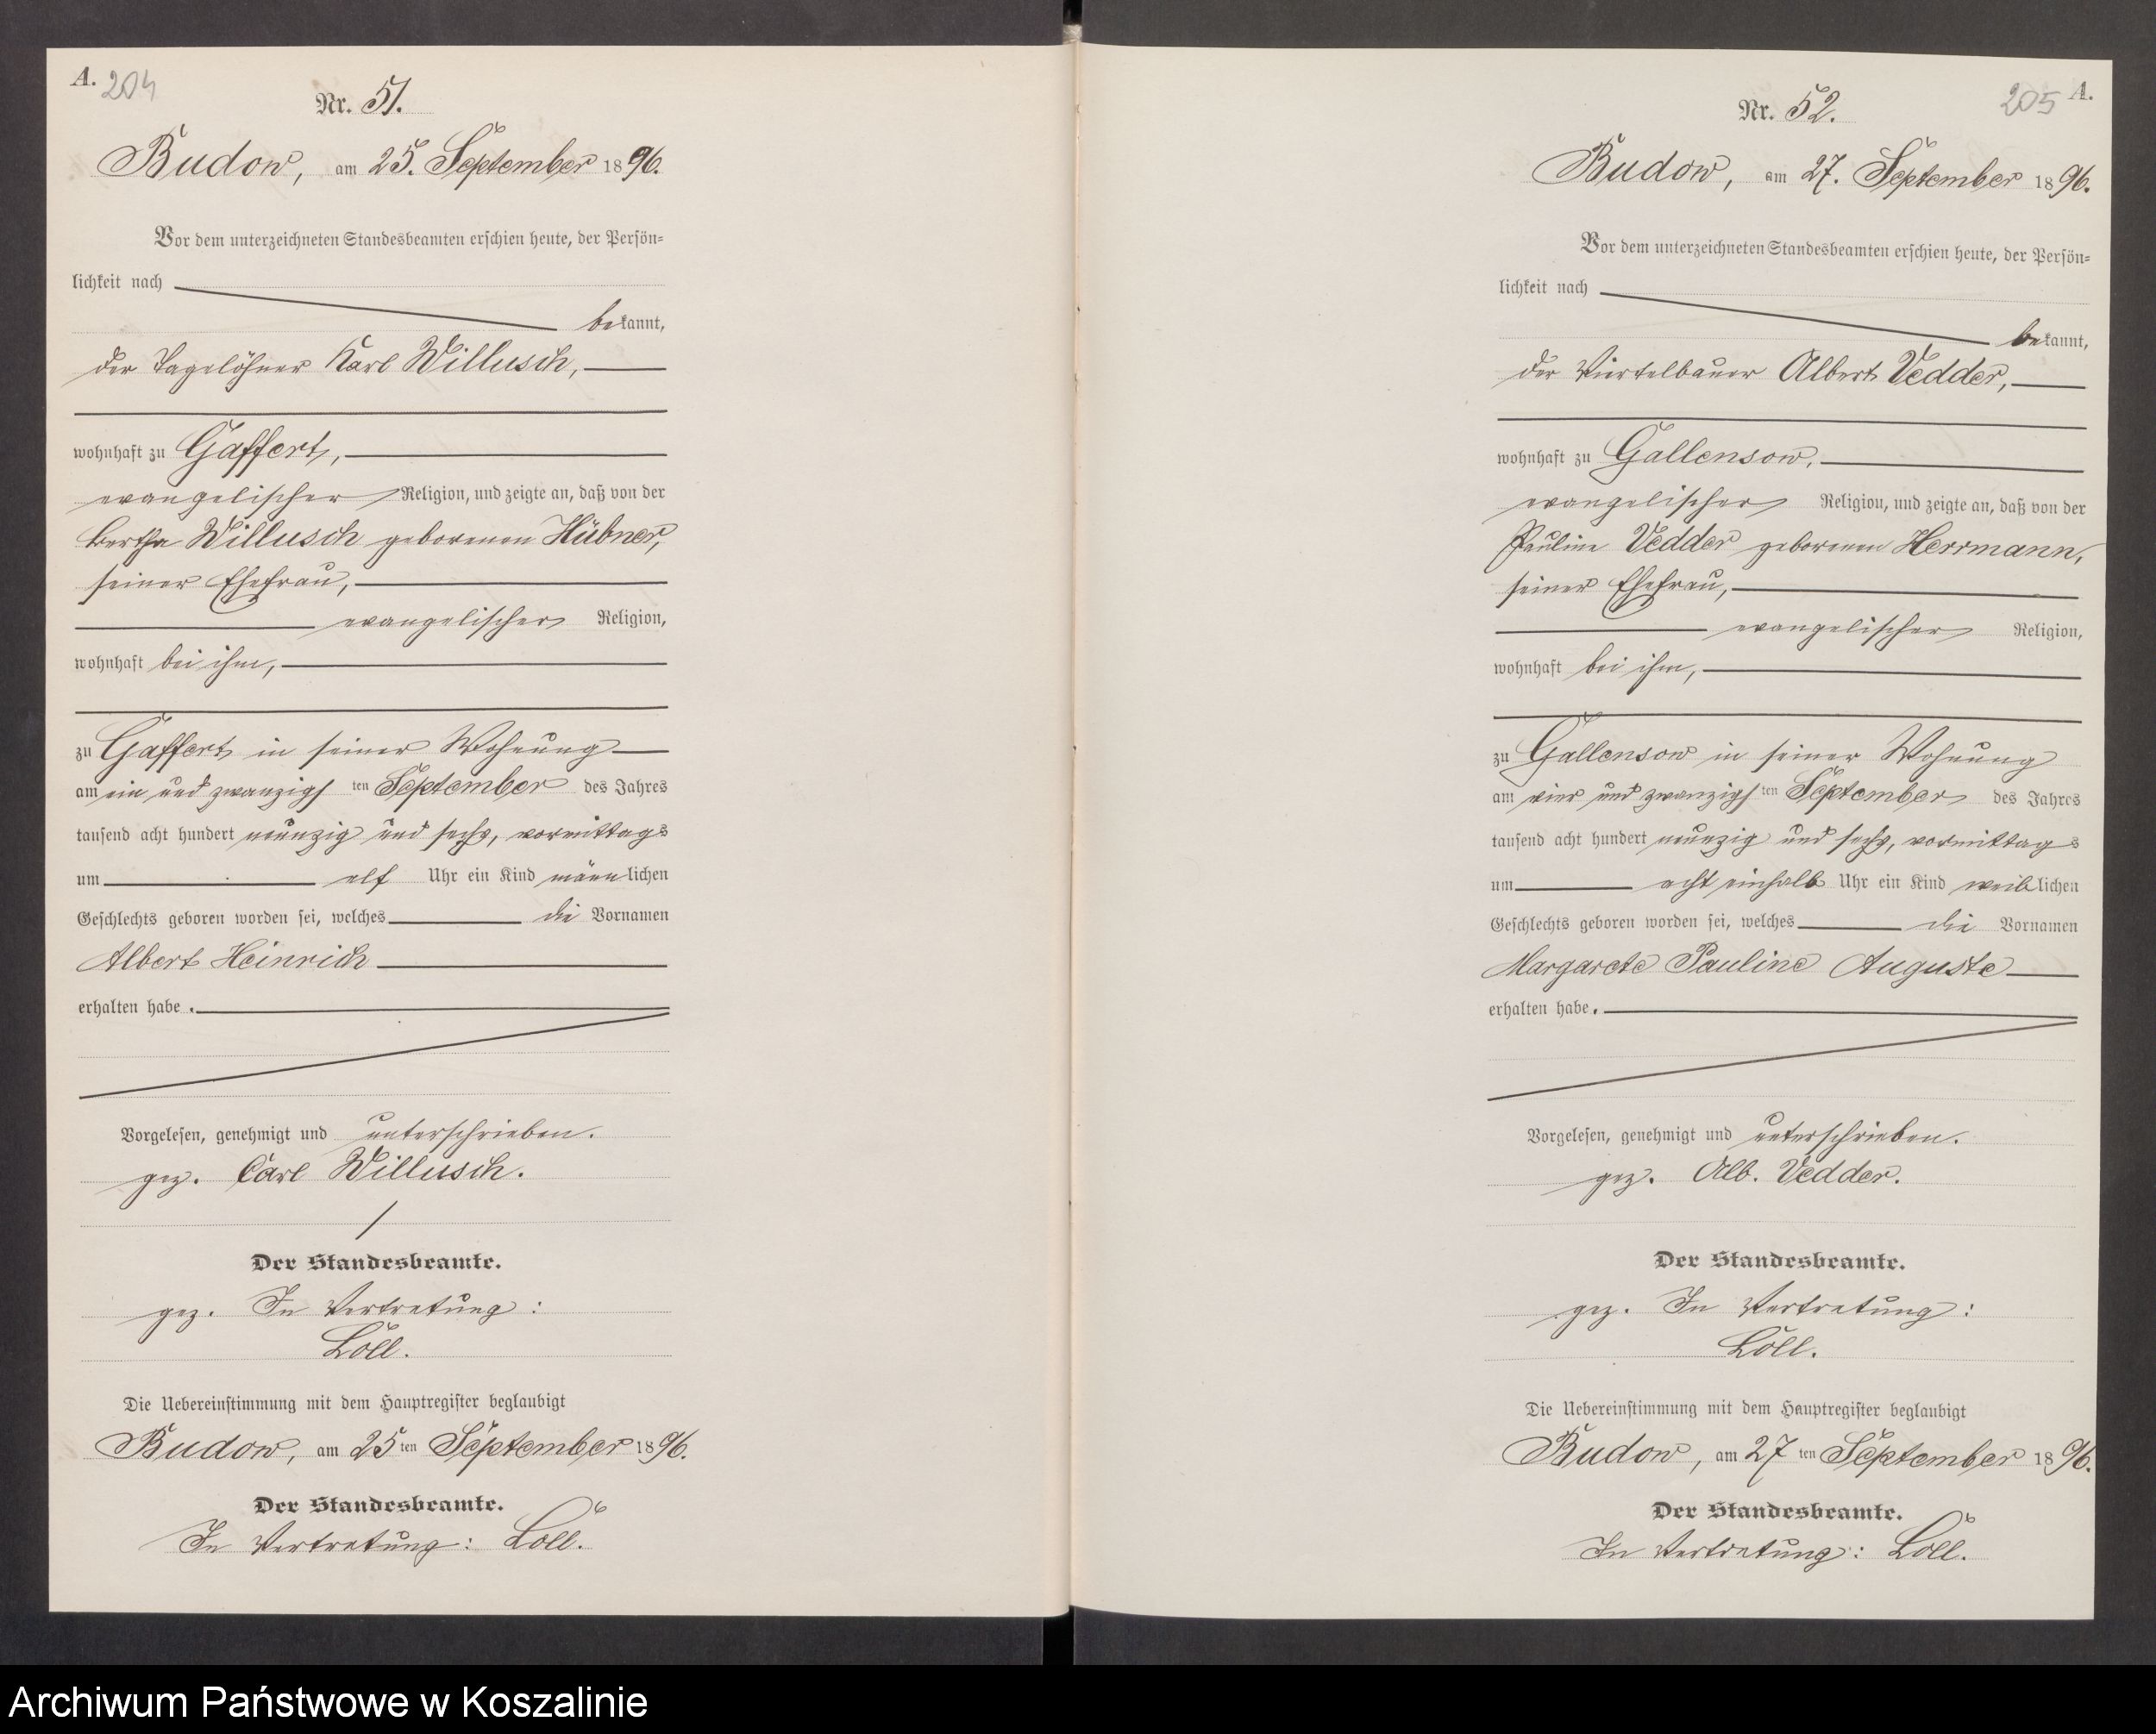 A. 204
Nr. 51.
Budow, am 25. September 1896.
Vor dem unterzeichneten Standesbeamten erschien heute, der Persön=
lichkeit nach
bekannt,
der Tagelöhner Karl Willusch,
wohnhaft zu Gaffert,
evangelischer Religion, und zeigte an, daß von der
Bertha Willusch geborenen Hübner,
seiner Ehefrau,
evangelischer Religion,
wohnhaft bei ihm,
zu Gaffert in seiner Wohnung
am ein und zwanzigsten September des Jahres
tausend acht hundert neunzig und sechs, vormittags
um elf Uhr ein Kind männlichen
Geschlechts geboren worden sei, welches die Vornamen
Albert Heinrich
erhalten habe.
Vorgelesen, genehmigt und unterschrieben.
gez. Carl Willusch.
Der Standesbeamte.
gez. In Vertretung:
Löll.
Die Uebereinstimmung mit dem Hauptregister beglaubigt
Budow, am 25ten September 1896.
Der Standesbeamte.
In Vertretung: Löll.
205 A.
Nr. 52.
Budow, am 27. September 1896.
Vor dem unterzeichneten Standesbeamten erschien heute, der Persön=
lichkeit nach
bekannt,
der Viertelbauer Albert Vedder,
wohnhaft zu Gallensow,
evangelischer Religion, und zeigte an, daß von der
Pauline Vedder geborenen Herrmann,
seiner Ehefrau,
evangelischer Religion,
wohnhaft bei ihm,
zu Gallensow in seiner Wohnung
am vier und zwanzigsten September des Jahres
tausend acht hundert neunzig und sechs, vormittags
um acht einhalb Uhr ein Kind weiblichen
Geschlechts geboren worden sei, welches die Vornamen
Margarete Pauline Auguste
erhalten habe.
Vorgelesen, genehmigt und unterschrieben.
gez. Alb. Vedder.
Der Standesbeamte.
gez. In Vertretung:
Löll.
Die Uebereinstimmung mit dem Hauptregister beglaubigt
Budow, am 27ten September 1896.
Der Standesbeamte.
In Vertretung: Löll.
Archiwum Państwowe w Koszalinie